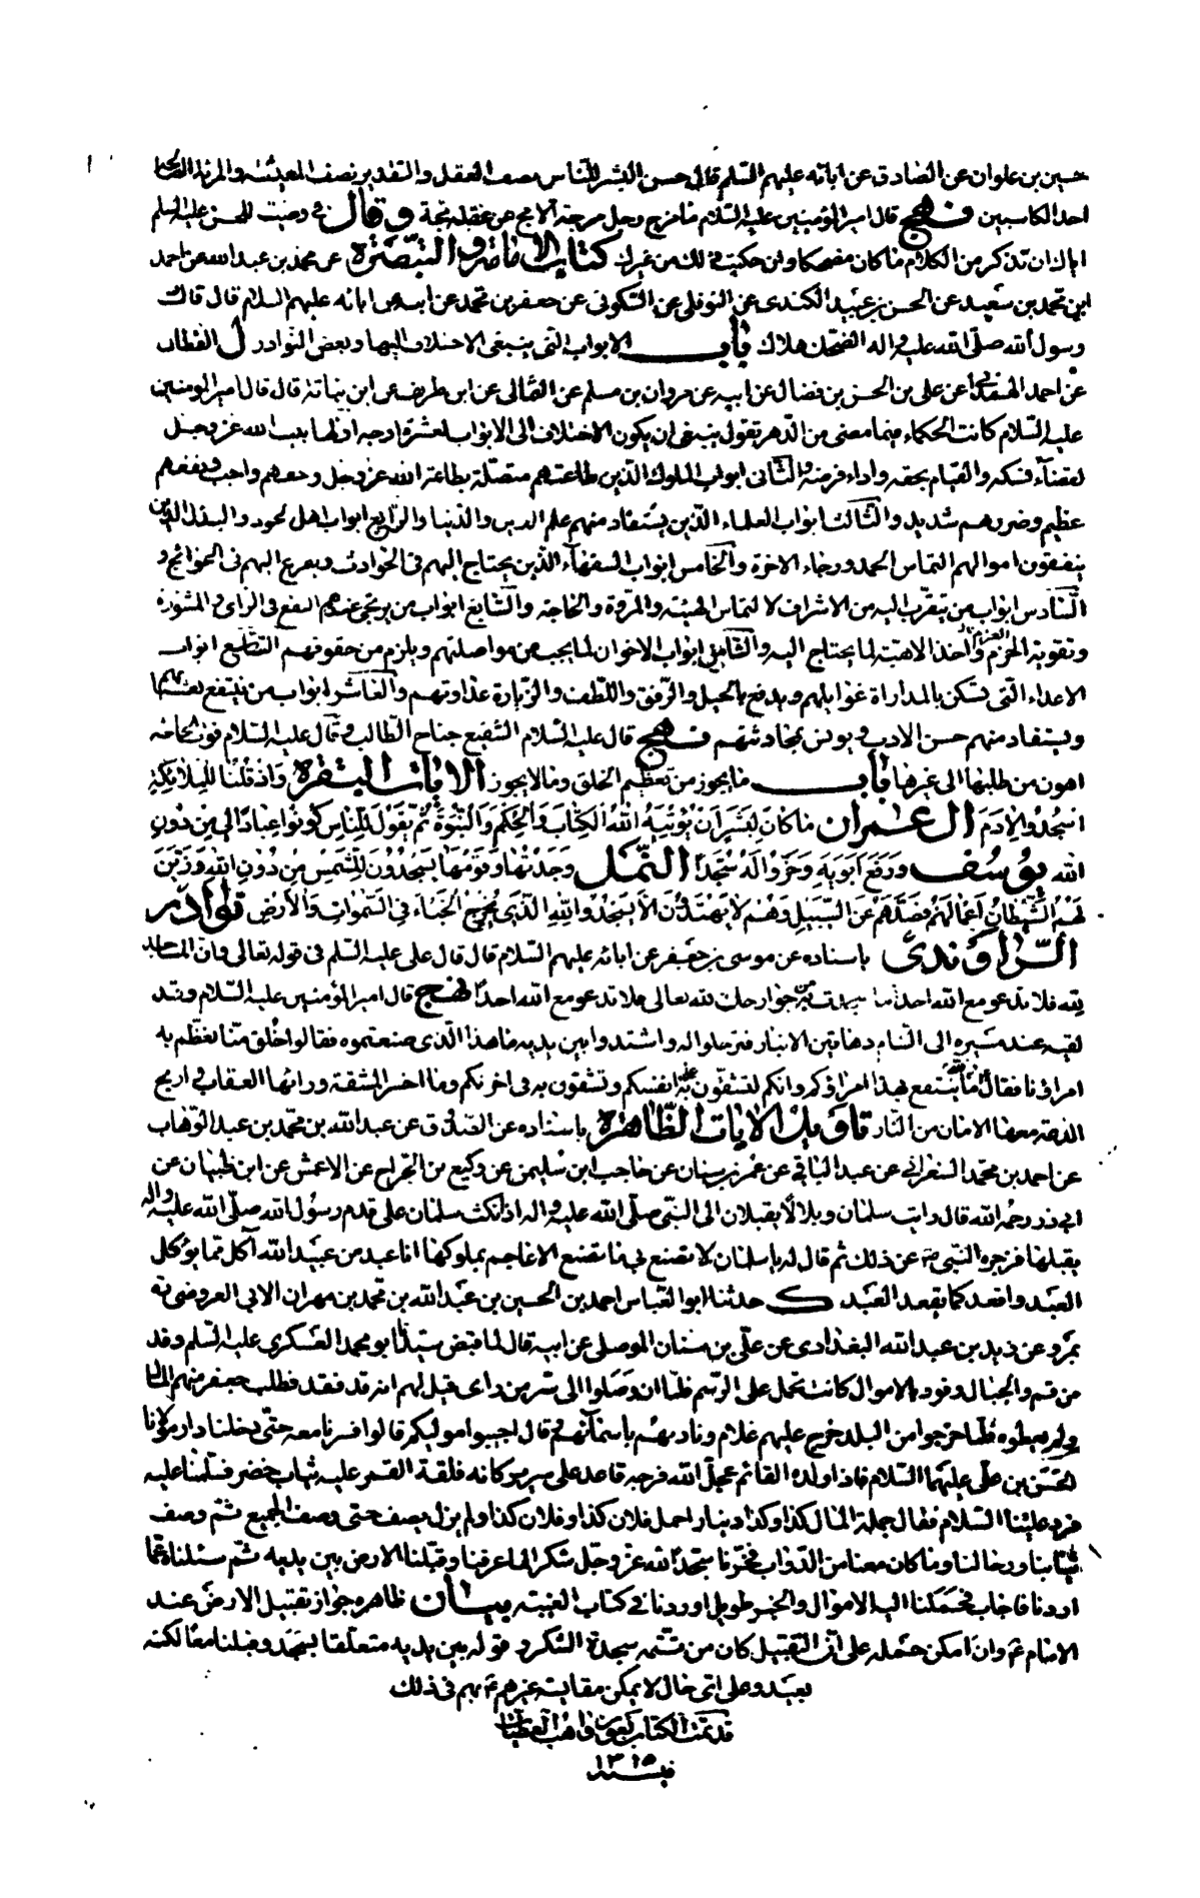 حسين بن علوان عن الصادق عن ابائه عليهم السّلم قال حسن البشر للنّاس نصف العقل والتقدير نصف المعيشة والمرئة الصالحة
احد الكاسبين نهج قال امير المؤمنين عليه السّلام ما مزح رجل مزحة الا مج من عقله مجّة وقال في وصيّته للحسن عليه السلم
اياك ان تذكر من الكلام ما كان مضحكا وان حكيت ذلك من غيرك كتاب الامامة والتبصرة عن محمد بن عبدالله عن احمد
ابن محمد بن سعيد عن الحسن بن عبيد الكندى عن النوفلى عن السّكونى عن جعفر بن محمد عن ابيه عن ابائه عليهم السلام قال قال
رسول الله صلّى الله عليه واله الضحك هلاك باب الابواب التى ينبغى الاختلاف اليها وبعض النوادر ل القطان
عن احمد الهمدانى عن على بن الحسن بن فضال عن ابيه عن مروان بن مسلم عن الثمالى عن ابن طريف عن ابن نباتة قال قال امير المومنين
عليه السّلام كانت الحكماء فيما مضى من الدّهر تقول ينبغى ان يكون الاختلاف الى الابواب لعشرة اوجه اولها بيت الله عز وجل
لقضاء نسكه والقيام بحقه واداء فرضه والثانى ابواب الملوك الذين طاعتهم متصلة بطاعة الله عز وجل وحقهم واجب ونفعهم
عظيم وضررهم شديد والثالث ابواب العلماء الذين يستفاد منهم علم الدين والدنيا والرابع ابواب اهل الجود والبذل الذين
ينفقون اموالهم التماس الحمد ورجاء الاخرة والخامس ابواب السفهاء الذين يحتاج اليهم فى الحوادث ويفزع اليهم فى الحوائج و
السّادس ابواب من يتقرّب اليه من الاشراف لالتماس الهيئة والمروة والحاجة والسّابع ابواب من يرتجى عندهم النفع فى الراى والمشورة
وتقوية الحزم واخذ الاهبة لما يحتاج اليه والثامن ابواب الاخوان لما يجب من مواصلتهم ويلزم من حقوقهم التاسع ابواب
الاعداء التى يسكن بالمداراة غوايلهم ويدفع بالحيل والرّفق واللطف والزيارة عداوتهم والعاشر ابواب من ينتفع بغشيانهم
ويستفاد منهم حسن الادب ويونس بمحادثتهم نهج قال عليه السّلام الشفيع جناح الطالب وقال عليه السّلام فوت الحاجة
اهون من طلبها الى غير اهلها باب ما يجوز من تعظيم الخلق وما لا يجوز الايات البقرة وَاِذ قُلْنَا لِلْمَلٰئِكَةِ
اسْجُدُوا لِاٰدَمَ ال عمران مَا كَانَ لِبَشَرٍ اَنْ يُؤْتِيَهُ اللهُ الكِتَابَ وَالْحُكْمَ وَالنُّبُوَّةَ ثُمَّ يَقُولَ لِلنَّاسِ كُونُوا عِبَادًا لِى مِنْ دُونِ
الله يوسف وَرَفَعَ اَبَوَيْهِ وَخَرُّوا لَهُ سُجَّدًا النّمل وَجَدْتُهَا وَقَوْمَهَا يَسْجُدُونَ لِلشَّمْسِ مِنْ دُونِ اللهِ وَزَيَّنَ
لَهُمُ الشَّيْطَانُ اَعْمَالَهُمْ فَصَدَّهُمْ عَنِ السَّبِيلِ وَهُمْ لا يَهْتَدُونَ اَلَّا يَسْجُدُوا لِلّٰهِ الَّذِى يُخْرِجُ الْخَبْءَ فِى السَّمٰوَاتِ وَالْاَرْضِ نوادر
الرّاوندىّ باسناده عن موسى بن جعفر عن ابائه عليهم السّلام قال قال على عليه السّلم فى قوله تعالى وان المساجد
لله فلا تدعو مع الله احدا ما سجدت به من جوارحك لله تعالى فلا تدعو مع الله احدًا نهج قال امير المؤمنين عليه السّلام وقد
لقيه عند مسيره الى الشام دهاقين الانبار فترجلوا له واشتدوا بين يديه ما هذا الّذى صنعتموه فقالوا خلق منّا نعظّم به
امراؤنا فقال والله ما ينتفع بهذا امراؤكم وانكم لتشقّون به على انفسكم وتشقون به فى اخرتكم وما اخسر المشقة ورائها العقاب واربح
الدعة معها الامان من النّار تاويل الايات الظاهرة باسناده عن الصّدوق عن عبدالله بن محمّد بن عبد الوّهاب
عن احمد بن محمّد الشعرانى عن عبد الباقى عن عمر بن سنان عن حاجب بن سليمن عن وكيع بن الجراح عن الاعمش عن ابن ظبيان عن
ابى ذر رحمه الله قال رايت سلمان وبلالًا يقبلان الى النبى صلّى الله عليه واله اذ انكب سلمان على قدم رسول الله صلّى الله عليه واله
يقبلها فزجره النبّى ص عن ذلك ثم قال له يا سلمان لا تصنع بى ما تصنع الاعاجم بملوكها انا عبد من عبيد الله آكل مما يؤكل
العبد واقعد كما يقعد العبد ك حدثنا ابو العباس احمد بن الحسين بن عبد الله بن محمّد بن مهران الابى العروضى ره
بمرو عن زيد بن عبد الله البغدادى عن علّى بن سنان الموصلى عن ابيه قال لما قبض سيّدنا ابو محمد العسكرى عليه السّلم وفد
من قم والجبال وفود بالاموال كانت تحمل على الرسم فلما ان وصلوا الى سر من راى قيل لهم انه قد فقد فطلب جعفر منهم المال
ولم يعطوه فلما خرجوا من البلد خرج عليهم غلام ونادىهم باسمائهم قال اجيبوا موليكم قالوا فسرنا معه حتّى دخلنا دار مولانا
الحسن بن علّى عليهما السّلام فاذا ولده القائم عجل الله فرجه قاعد على سرير كانه فلقة القمر عليه ثياب خضر فسلّمنا عليه
فرد علينا السّلام فقال جملة المال كذا وكذا دينار احمل فلان كذا وفلان كذا ولم يزل يصف حتى وصف الجميع ثم وصف
ثيابنا ورحالنا وما كان معنا من الدّواب فخررنا سجدًا لله عزّ وجلّ شكرا لما عرفنا وقبّلنا الارض بين يديه ثمّ سئلناه عمّا
اردنا فاجاب فحملنا اليه الاموال والخبر طويل اوردنا فى كتاب الغيبة بيان ظاهره جواز تقبيل الارض عند
الامام ع وان امكن حمله على ان التقبيل كان من تتمه سجدة الشكر و قوله بين يديه متعلقا بسجد وقبلنا معًا لكنه
بعيد وعلى اى حال لا يمكن مقايسة غيرهم ع بهم فى ذلك
قد تمّت الكتاب بعون واهب العطيات
فى سنة ١٣١٥